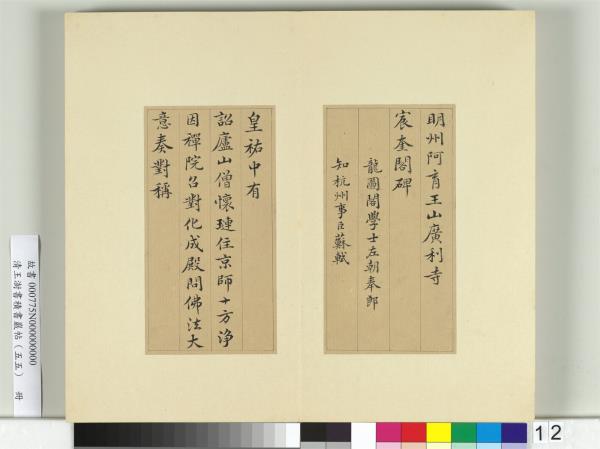 明州阿育王山廣利寺
宸奎閣碑
龍圖閣學士左朝奉郎
知杭州事臣蘇軾
皇祐中有
詔廬山僧懷璉住京師十方淨
因禪院召對化成殿問佛法大
意奏對稱
故書 000775N000000000
清王澍書積書巖帖（五五） 冊
12